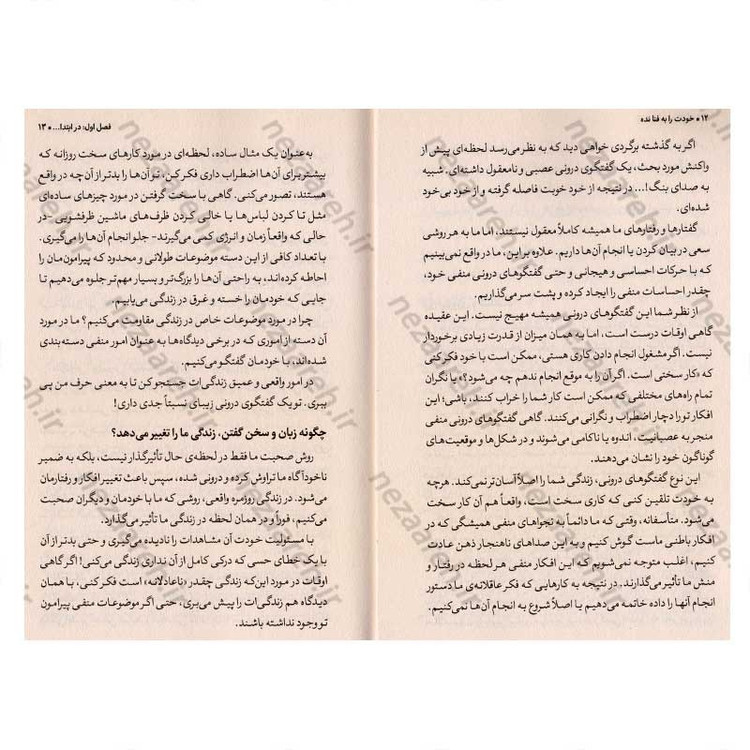 ۱۲ • خودت را به فنا نده
اگر به گذشته برگردی خواهی دید که به نظر می‌رسد لحظه‌ای پیش از
واکنش مورد بحث، یک گفتگوی درونی عصبی و نامعقول داشته‌ای. شبیه
به صدای بنگ!... در نتیجه از خود خوبت فاصله گرفته و از خود بی‌خود
شده‌ای.
گفتارها و رفتارهای ما همیشه کاملاً معقول نیستند، اما ما به هر روشی
سعی در بیان کردن یا انجام آن‌ها داریم. علاوه بر این، ما در واقع نمی‌بینیم
که با حرکات احساسی و هیجانی و حتی گفتگوهای درونی منفی خود،
چقدر احساسات منفی را ایجاد کرده و پشت سر می‌گذاریم.
از نظر شما این گفتگوهای درونی همیشه مهیج نیست. این عقیده
گاهی اوقات درست است، اما به همان میزان از قدرت زیادی برخوردار
نیست. اگر مشغول انجام دادن کاری هستی، ممکن است با خود فکر کنی
که «کار سختی است. اگر آن را به موقع انجام ندهم چه می‌شود؟» یا نگران
تمام راه‌های مختلفی که ممکن است کار شما را خراب کنند، باشی؛ این
افکار تو را دچار اضطراب و نگرانی می‌کنند. گاهی گفتگوهای درونی منفی
منجر به عصبانیت، اندوه یا ناکامی می‌شوند و در شکل‌ها و موقعیت‌های
گوناگون خود را نشان می‌دهند.
این نوع گفتگوهای درونی، زندگی شما را اصلاً آسان‌تر نمی‌کند. هرچه
به خودت تلقین کنی که کاری سخت است، واقعاً هم آن کار سخت
می‌شود. متأسفانه، وقتی که ما دائماً به نجواهای منفی همیشگی که در
افکار باطنی ماست گوش کنیم و به این صداهای ناهنجار ذهن عادت
کنیم، اغلب متوجه نمی‌شویم که این افکار منفی هر لحظه در رفتار و
منش ما تأثیر می‌گذارند. در نتیجه به کارهایی که فکر عاقلانه‌ی ما دستور
انجام آنها را داده خاتمه می‌دهیم یا اصلاً شروع به انجام آن‌ها نمی‌کنیم.
فصل اول: در ابتدا... • ۱۳
به‌عنوان یک مثال ساده، لحظه‌ای در مورد کارهای سخت روزانه که
بیشتر برای آن‌ها اضطراب داری فکر کن، تو آن‌ها را بدتر از آن چه در واقع
هستند، تصور می‌کنی. گاهی با سخت گرفتن در مورد چیزهای ساده‌ای
مثل تا کردن لباس‌ها یا خالی کردن ظرف‌های ماشین ظرفشویی -در
حالی که واقعاً زمان و انرژی کمی می‌گیرند- جلو انجام آن‌ها را می‌گیری.
با تعداد کافی از این دسته موضوعات طولانی و محدود که پیرامون‌مان را
احاطه کرده‌اند، به راحتی آن‌ها را بزرگ‌تر و بسیار مهم‌تر جلوه می‌دهیم تا
جایی که خودمان را خسته و غرق در زندگی می‌یابیم.
چرا در مورد موضوعات خاص در زندگی مقاومت می‌کنیم؟ ما در مورد
آن دسته از اموری که در برخی دیدگاه‌ها به عنوان امور منفی دسته‌بندی
شده‌اند، با خودمان گفتگو می‌کنیم.
در امور واقعی و عمیق زندگی‌ات جستجو کن تا به معنی حرف من پی
ببری. تو یک گفتگوی درونی زیبای نسبتاً جدی داری!
چگونه زبان و سخن گفتن، زندگی ما را تغییر می‌دهد؟
روش صحبت ما فقط در لحظه‌ی حال تأثیرگذار نیست، بلکه به ضمیر
ناخودآگاه ما تراوش کرده و درونی شده، سپس باعث تغییر افکار و رفتارمان
می‌شود. در زندگی روزمره واقعی، روشی که ما با خودمان و دیگران صحبت
می‌کنیم، فوراً و در همان لحظه در زندگی ما تأثیر می‌گذارد.
با مسئولیت خودت آن مشاهدات را نادیده می‌گیری و حتی بدتر از آن
با یک خطای حسی که درکی کامل از آن نداری زندگی می‌کنی! اگر گاهی
اوقات در مورد این‌که زندگی چقدر «ناعادلانه» است فکر کنی، با همان
دیدگاه هم زندگی‌ات را پیش می‌بری، حتی اگر موضوعات منفی پیرامون
تو وجود نداشته باشند.
nezaareh.ir